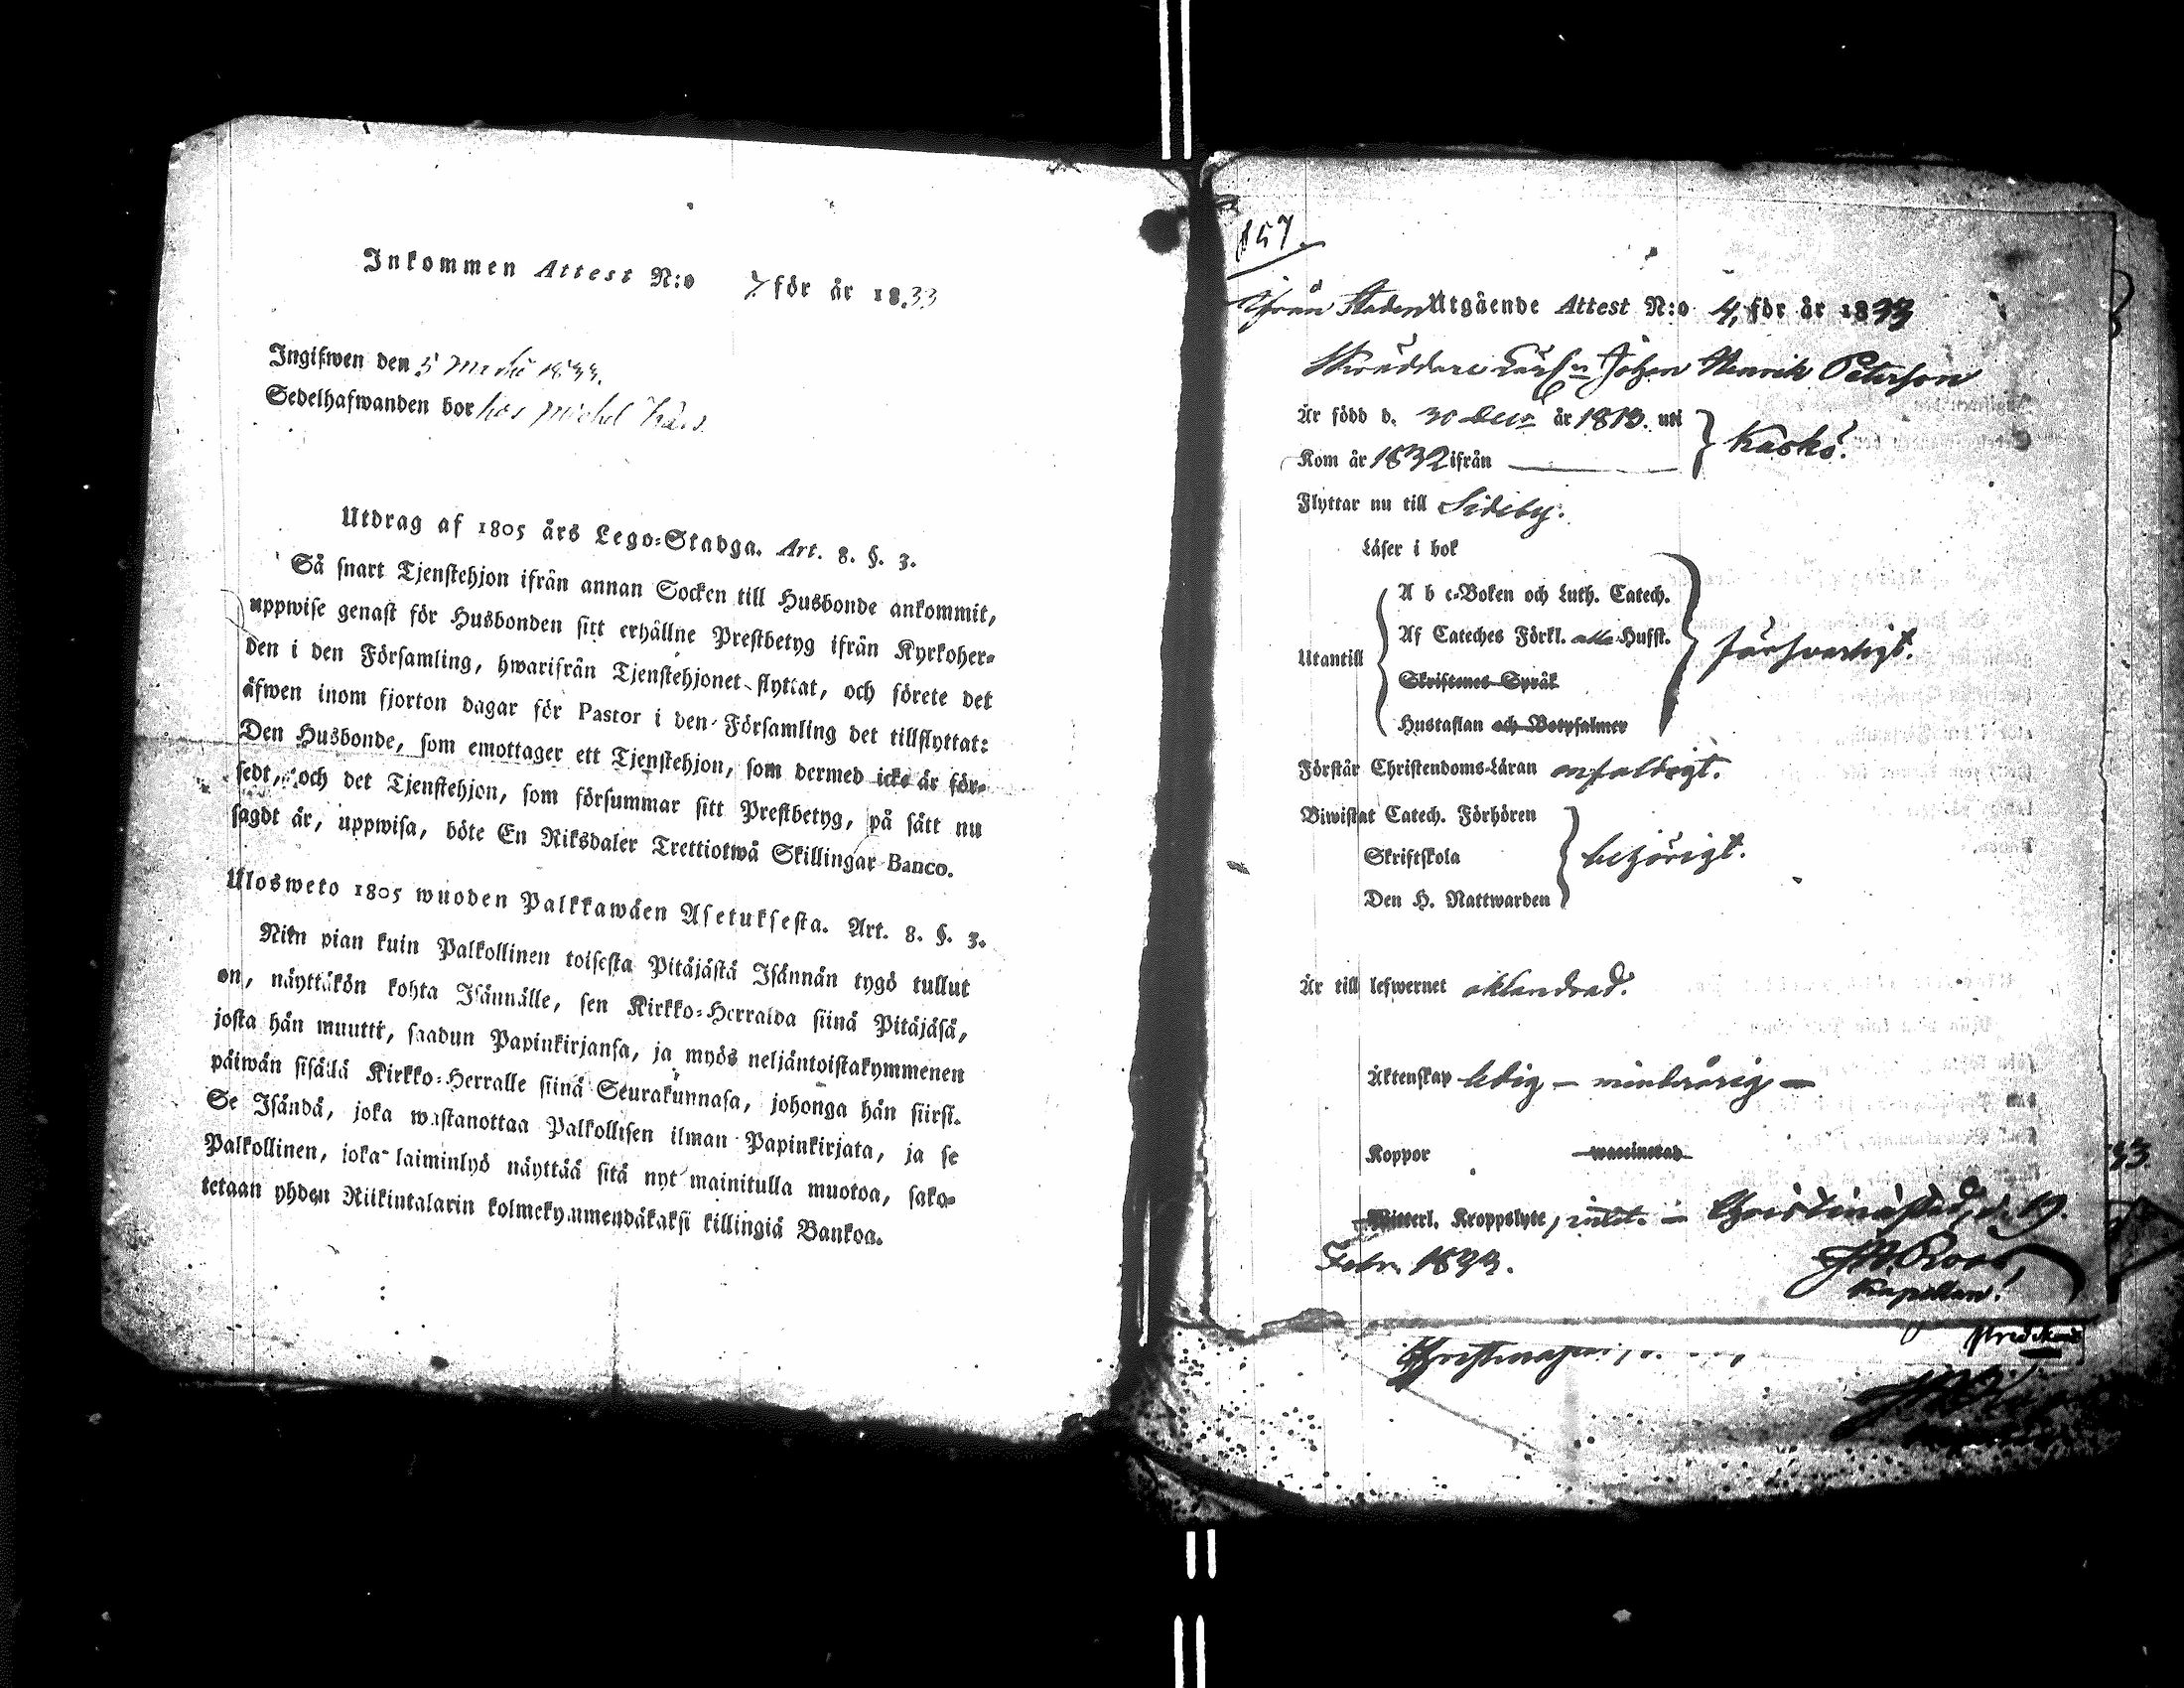 Inkommen Attest N:o 7 för år 1833
Ingifwen den 5 Martii 1833.
Sedelhafwanden bor hos Michel
Utdrag af 1805 års Lego-Stadga. Art. 8. §. 3.
Så snart Tjenstehjon ifrån annan Socken till Husbonde ankommit,
uppwise genast för Husbonden sitt erhållne Prestbetyg ifrån Kyrkoher-
den i den Församling, hwarifrån Tjenstehjonet flyttat, och förete det
äfwen inom fjorton dagar för Pastor i den Församling det tillflyttat:
Den Husbonde, som emottager ett Tjenstehjon, som dermed icke är för-
sedt, och det Tjenstehjon, som försummar sitt Prestbetyg, på sätt nu
sagdt är, uppwisa, böte En Riksdaler Trettiotwå Skillingar Banco.
Ulosweto 1805 wuoden Palkkawäen Asetuksesta. Art. 8. §. 3.
Niin pian kuin Palkollinen toisesta Pitäjästä Isännän tygö tullut
on, näyttäkön kohta Isännälle, sen Kirkko-Herralda siinä Pitäjäsä,
josta hän muutti, saadun Papinkirjansa, ja myös neljäntoistakymmenen
päiwän sisällä Kirkko-Herralle siinä Seurakunnasa, johonga hän siirsi.
Se Isändä, joka wastanottaa Palkollisen ilman Papinkirjata, ja se
Palkollinen, joka laiminlyö näyttää sitä nyt mainitulla muotoa, sako-
tetaan yhden Riikintalarin kolmekymmendäkaksi killingiä Bankoa.
157
Ifrån Staden Utgående Attest N:o 4, för år 1833
Skräddare Lärl:n Johan Henrik Peterson
Är född d. 30 Decr år 1813. uti
Kaskö.
Kom år 1832 ifrån
Flyttar nu till Sideby.
Läser i bok
A b c-Boken och Luth. Catech.
Af Cateches Förkl. alla Hufst.
Utantill
försvarligt.
Skriftenes Språk
Hustaflan och Botpsalmer
Förstår Christendoms-Läran enfaldigt.
Biwistat Catech. Förhören
Skriftskola
behörigt.
Den H. Nattwarden
Är till lefwernet oklandrad.
Äktenskap ledig — minderårig —
Koppor waccinerad
Witterl. Kroppslyte, intet. — Christinæstad, d. 19.
Febr. 1833.
Roos,
Kapellan.
33.